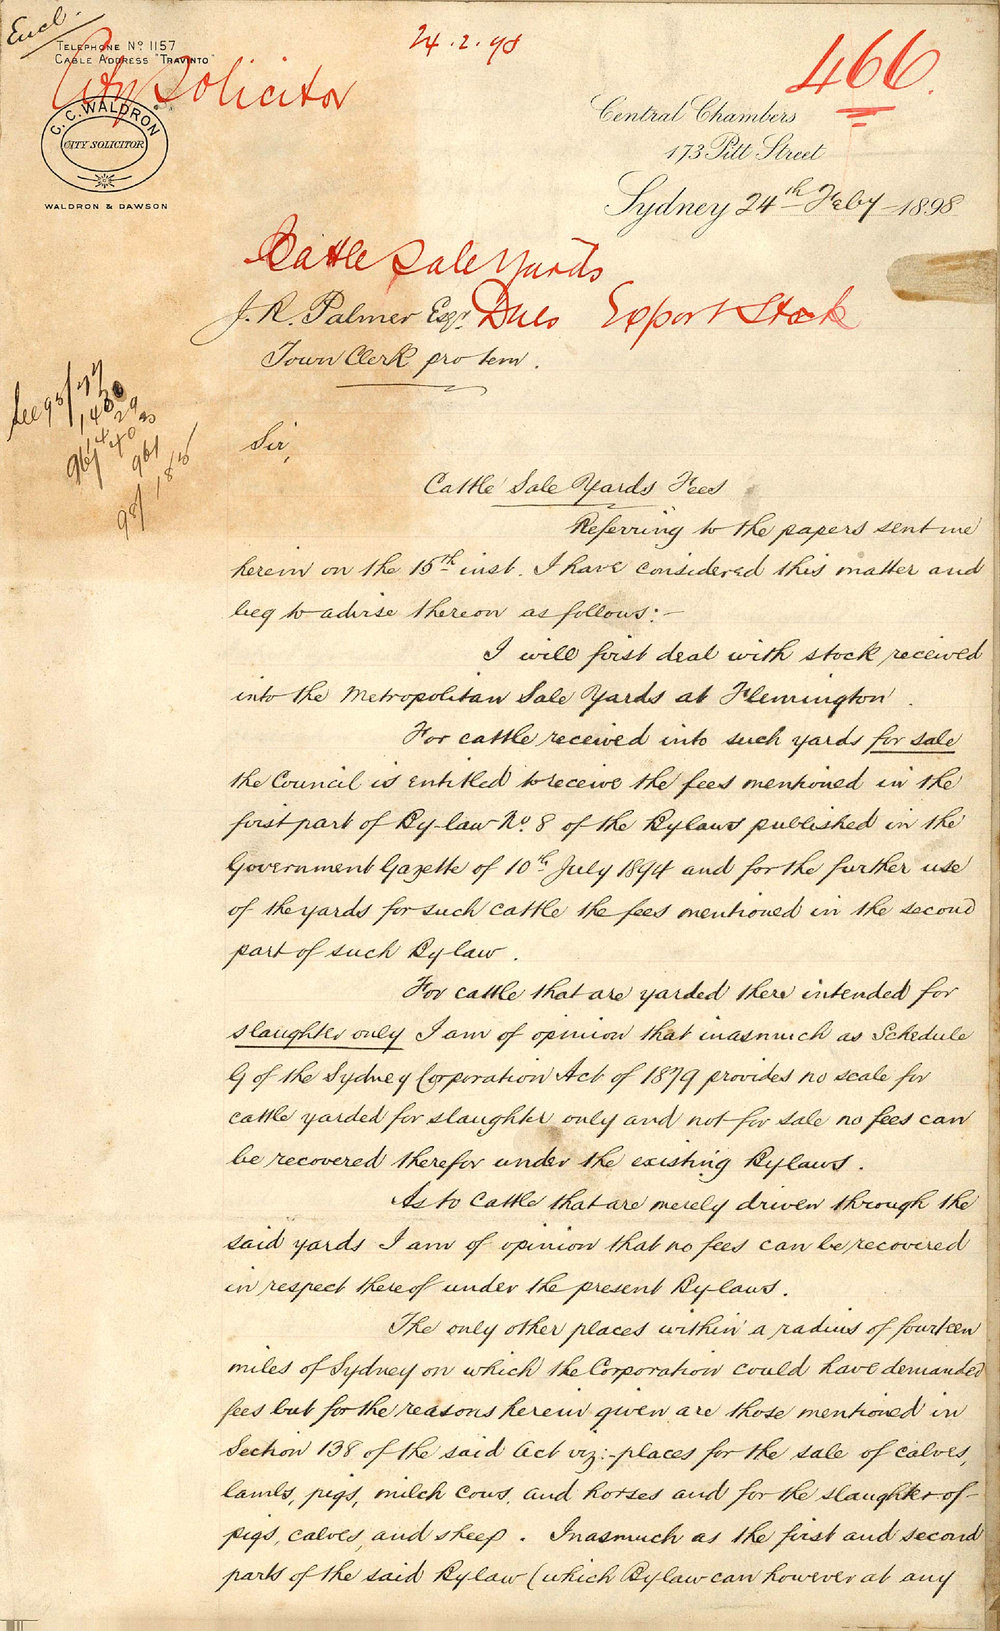 Encl.
TELEPHONE No 1157
CABLE ADDRESS "TRAVINTO"
City Solicitor
24.2.98
466.
C. C. WALDRON
CITY SOLICITOR
WALDRON & DAWSON
Central Chambers
173 Pitt Street
Sydney 24th Feby 1898
Cattle Sale Yards
Dues Export Stock
J. R. Palmer Esqr
Town Clerk pro tem.
Sir,
Cattle Sale Yards Fees
Referring to the papers sent me
herein on the 15th inst. I have considered this matter and
beg to advise thereon as follows:-
I will first deal with stock received
into the Metropolitan Sale Yards at Flemington.
For cattle received into such yards for sale
the Council is entitled to receive the fees mentioned in the
first part of By-law No. 8 of the Bylaws published in the
Government Gazette of 10th July 1894 and for the further use
of the yards for such cattle the fees mentioned in the second
part of such Bylaw.
For cattle that are yarded there intended for
slaughter only I am of opinion that inasmuch as Schedule
G of the Sydney Corporation Act of 1879 provides no scale for
cattle yarded for slaughter only and not for sale no fees can
be recovered therefor under the existing Bylaws.
As to cattle that are merely driven through the
said yards I am of opinion that no fees can be recovered
in respect thereof under the present By-laws.
The only other places within a radius of fourteen
miles of Sydney on which the Corporation could have demanded
fees but for the reasons herein given are those mentioned in
Section 138 of the said Act viz:-places for the sale of calves,
lambs, pigs, milch cows, and horses and for the slaughter of
pigs, calves, and sheep. Inasmuch as the first and second
parts of the said Bylaw (which Bylaw can however at any